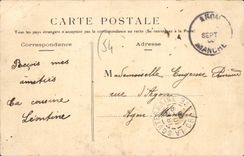 CARTE POSTALE
Tous les pays étrangers n'acceptent pas la correspondance au recto
Correspondance
Adresse
54
Reçois mes
amitiés
Ta cousine
Léontine
Mademoiselle Eugénie
rue d'Agon
Agon Manche
SEPT
MANCHE